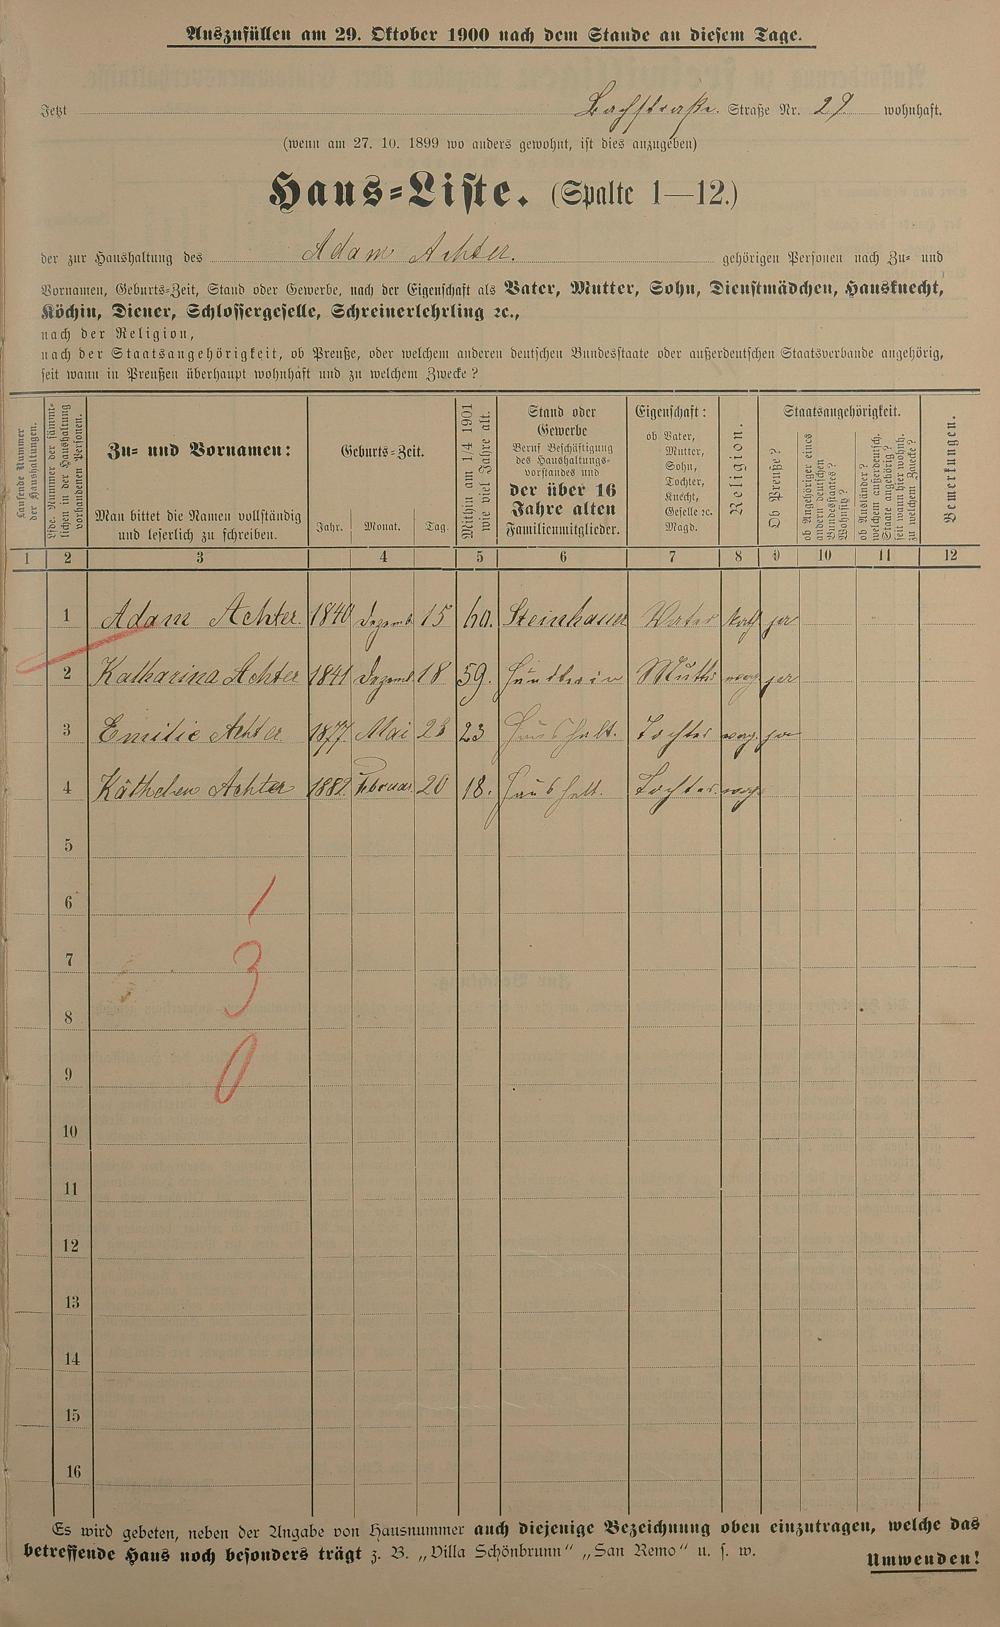 Auszufüllen am 29. Oktober 1900 nach dem Stande an diesem Tage.
Jetzt Bachstraße. Straße Nr. 29 wohnhaft.
(wenn am 27. 10. 1899 wo anders gewohnt, ist dies anzugeben)
Haus-Liste. (Spalte 1—12.)
der zur Haushaltung des Adam Achter. gehörigen Personen nach Zu- und
Vornamen, Geburts-Zeit, Stand oder Gewerbe, nach der Eigenschaft als Vater, Mutter, Sohn, Dienstmädchen, Hausknecht,
Köchin, Diener, Schlossergeselle, Schreinerlehrling ꝛc.,
nach der Religion,
nach der Staatsangehörigkeit, ob Preuße, oder welchem anderen deutschen Bundesstaate oder außerdeutschen Staatsverbande angehörig,
seit wann in Preußen überhaupt wohnhaft und zu welchem Zwecke?
Laufende Nummer
der Haushaltungen.
Lfde. Nummer der sämmt-
lichen in der Haushaltung
vorhandenen Personen.
Zu- und Vornamen:
Man bittet die Namen vollständig
und leserlich zu schreiben.
Geburts-Zeit.
Jahr. Monat. Tag.
Mithin am 1/4 1901
wie viel Jahre alt.
Stand oder
Gewerbe
Beruf Beschäftigung
des Haushaltungs-
vorstandes und
der über 16
Jahre alten
Familienmitglieder.
Eigenschaft:
ob Vater,
Mutter,
Sohn,
Tochter,
Knecht,
Geselle ꝛc.
Magd.
Religion.
Staatsangehörigkeit.
Ob Preuße?
ob Angehöriger eines
andern deutschen
Bundesstaates?
Wohnsitz?
ob Ausländer?
welchem außerdeutsch.
Staate angehörig?
seit wann hier wohnh.
zu welchem Zwecke?
Bemerkungen.
1 2 3 4 5 6 7 8 9 10 11 12
1 Adam Achter. 1840 Dezemb. 15 60. Steinhauer Vater Kath ja
2 Katharina Achter 1841 Dezemb 18 59. Händlerin Mutter evag. ja
3 Emilie Achter 1877 Mai 23 Haushalt. Tochter evag. ja
4 Käthchen Achter 1882 Februar. 20 18. Haushalt. Tochter. evag.
5
6
7
8
9
10
11
12
13
14
15
16
1
3
0
Es wird gebeten, neben der Angabe von Hausnummer auch diejenige Bezeichnung oben einzutragen, welche das
betreffende Haus noch besonders trägt z. B. „Villa Schönbrunn" „San Remo" u. s. w.
Umwenden!